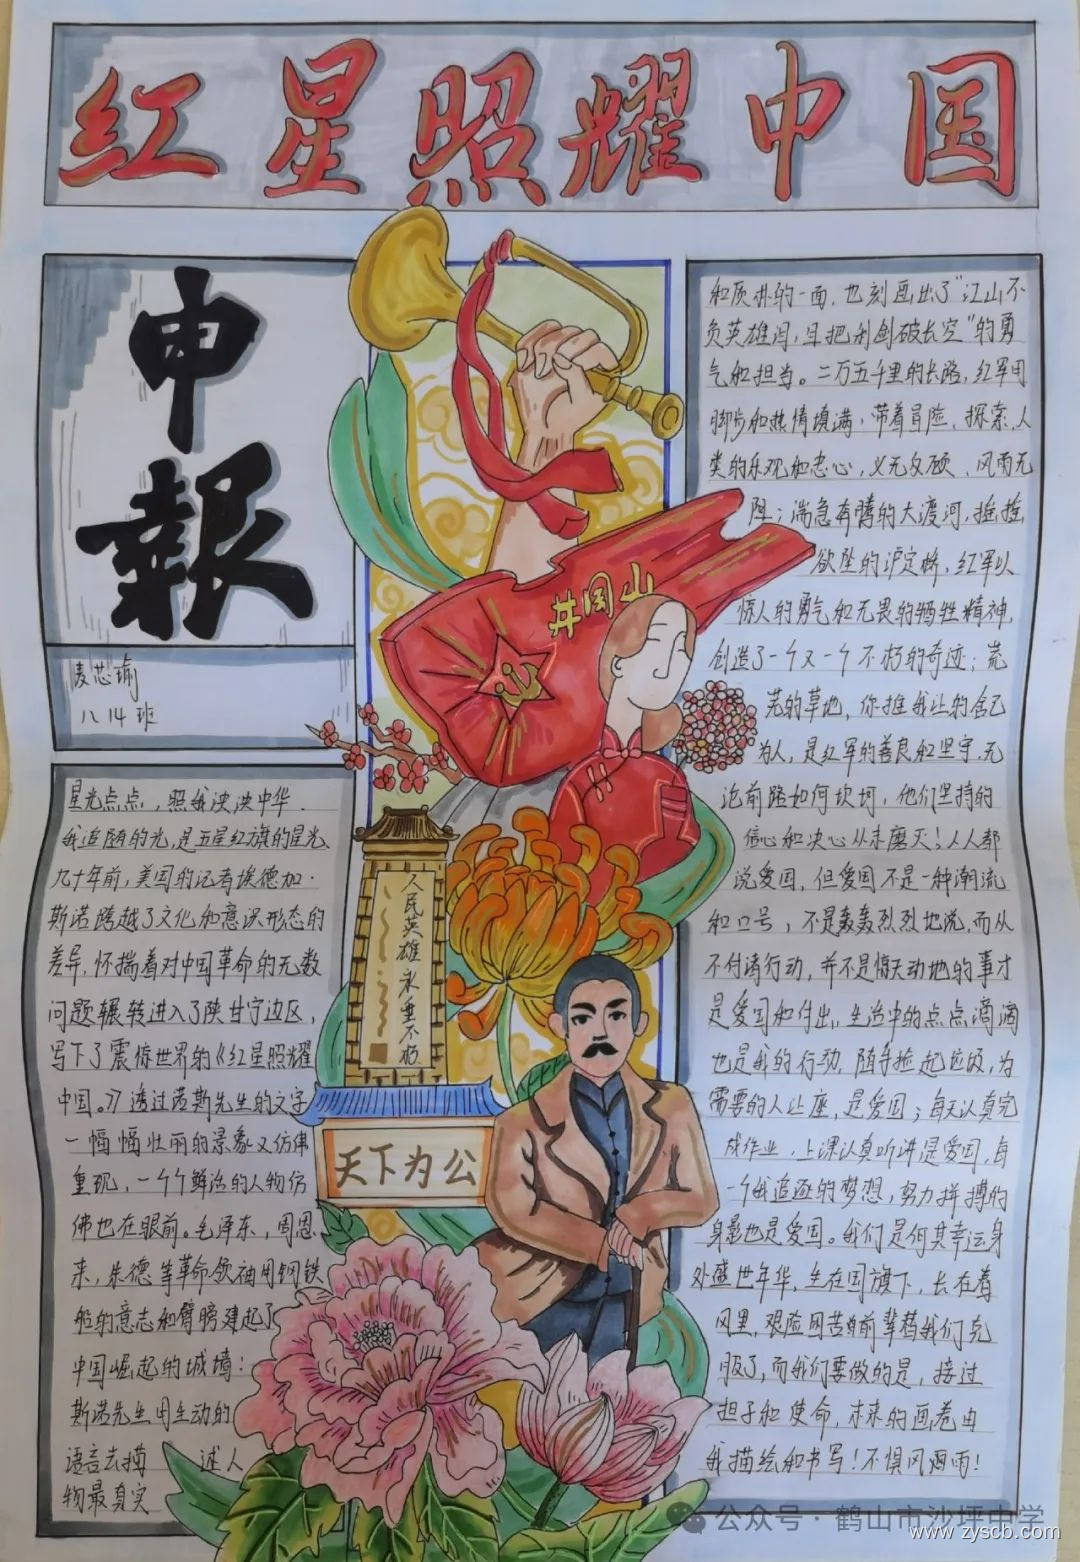 红星照耀中国
申
報
麦芯瑜
八14班
星光点点，照我泱泱中华.
我追随的光，是五星红旗的星光、
九十年前，美国的记者埃德加·
斯诺跨越了文化和意识形态的
差异，怀揣着对中国革命的无数
问题辗转进入了陕甘宁边区，
写下了震惊世界的《红星照耀
中国。》透过诺斯先生的文字
一幅幅壮丽的景象又仿佛
重现，一个个鲜活的人物仿
佛也在眼前。毛泽东，周恩
来，朱德等革命领袖用钢铁
般的意志和臂膀建起了
中国崛起的城墙：
斯诺先生用生动的
语言去描 述人
物最真实
井冈山
人民英雄永垂不朽
天下为公
和质朴的一面，也刻画出了“江山不
负英雄泪，且把利剑破长空”的勇
气和担当。二万五千里的长路，红军用
脚步和热情填满，带着冒险、探索、人
类的乐观和忠心，义无反顾、风雨无
阻；湍急有情的大渡河，摇摇
欲坠的泸定桥，红军以
惊人的勇气和无畏的牺牲精神，
创造了一个又一个不朽的奇迹；荒
芜的草地，你推我让的舍己
为人，是红军的善良和坚守，无
论前路如何坎坷，他们坚持的
信心和决心从未磨灭！人人都
说爱国，但爱国不是一种潮流
和口号，不是轰轰烈烈地说，而从
不付诸行动，并不是惊天动地的事才
是爱国和付出，生活中的点点滴滴
也是我的行动，随手捡起垃圾，为
需要的人让座，是爱国；每天认真完
成作业，上课认真听讲是爱国，每
一个我追逐的梦想，努力拼搏的
身影也是爱国。我们是何其幸运身
处盛世年华，生在国旗下，长在春
风里，艰险困苦由前辈替我们克
服了，而我们要做的是，接过
担子和使命，未来的画卷由
我描绘和书写！不惧风遇雨！
公众号·鹤山市沙坪中学
www.zyscb.com